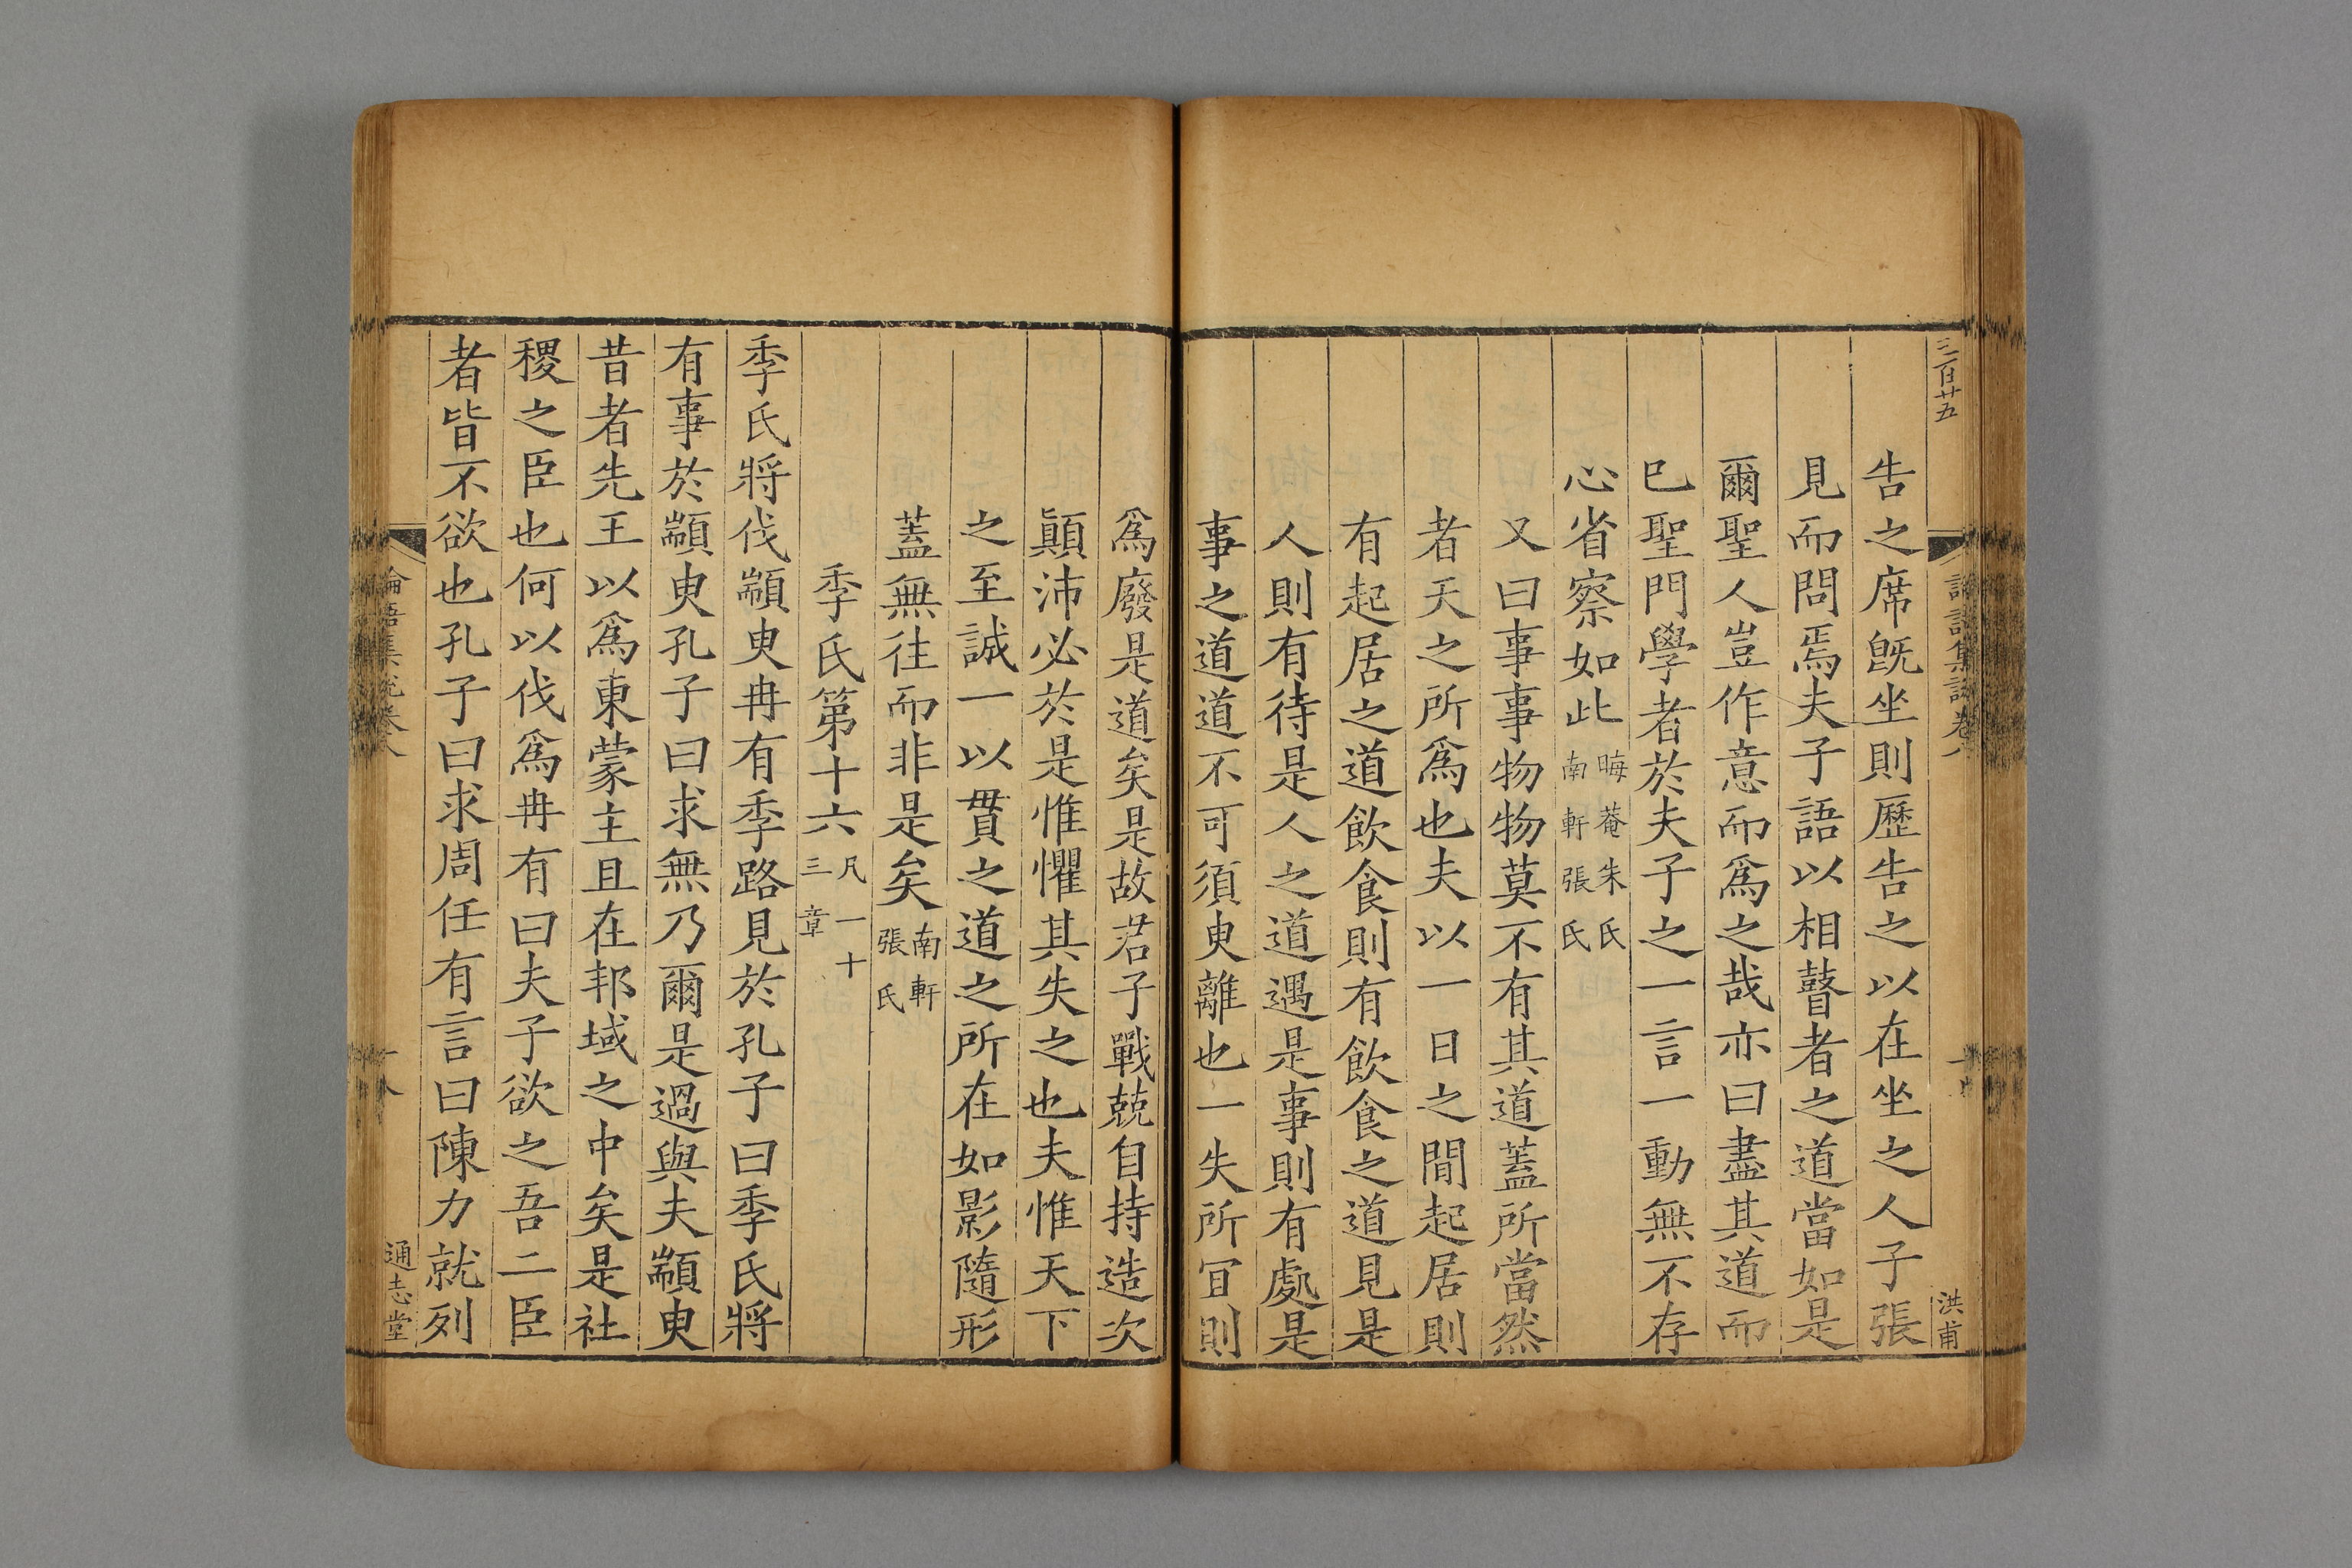 三百廿五
論語集說卷八
洪甫
告之席旣坐則歷告之以在坐之人子張
見而問焉夫子語以相瞽者之道當如是
爾聖人豈作意而爲之哉亦曰盡其道而
已聖門學者於夫子之一言一動無不存
心省察如此晦菴朱氏南軒張氏
又曰事事物物莫不有其道蓋所當然
者天之所爲也夫以一日之間起居則
有起居之道飲食則有飲食之道見是
人則有待是人之道遇是事則有處是
事之道道不可須臾離也一失所冝則
爲廢是道矣是故君子戰兢自持造次
顚沛必於是惟懼其失之也夫惟天下
之至誠一以貫之道之所在如影隨形
蓋無往而非是矣南軒張氏
季氏第十六凡一十三章
季氏將伐顓臾冉有季路見於孔子曰季氏將
有事於顓臾孔子曰求無乃爾是過與夫顓臾
昔者先王以爲東蒙主且在邦域之中矣是社
稷之臣也何以伐爲冉有曰夫子欲之吾二臣
者皆不欲也孔子曰求周任有言曰陳力就列
論語集說卷八
十八
通志堂